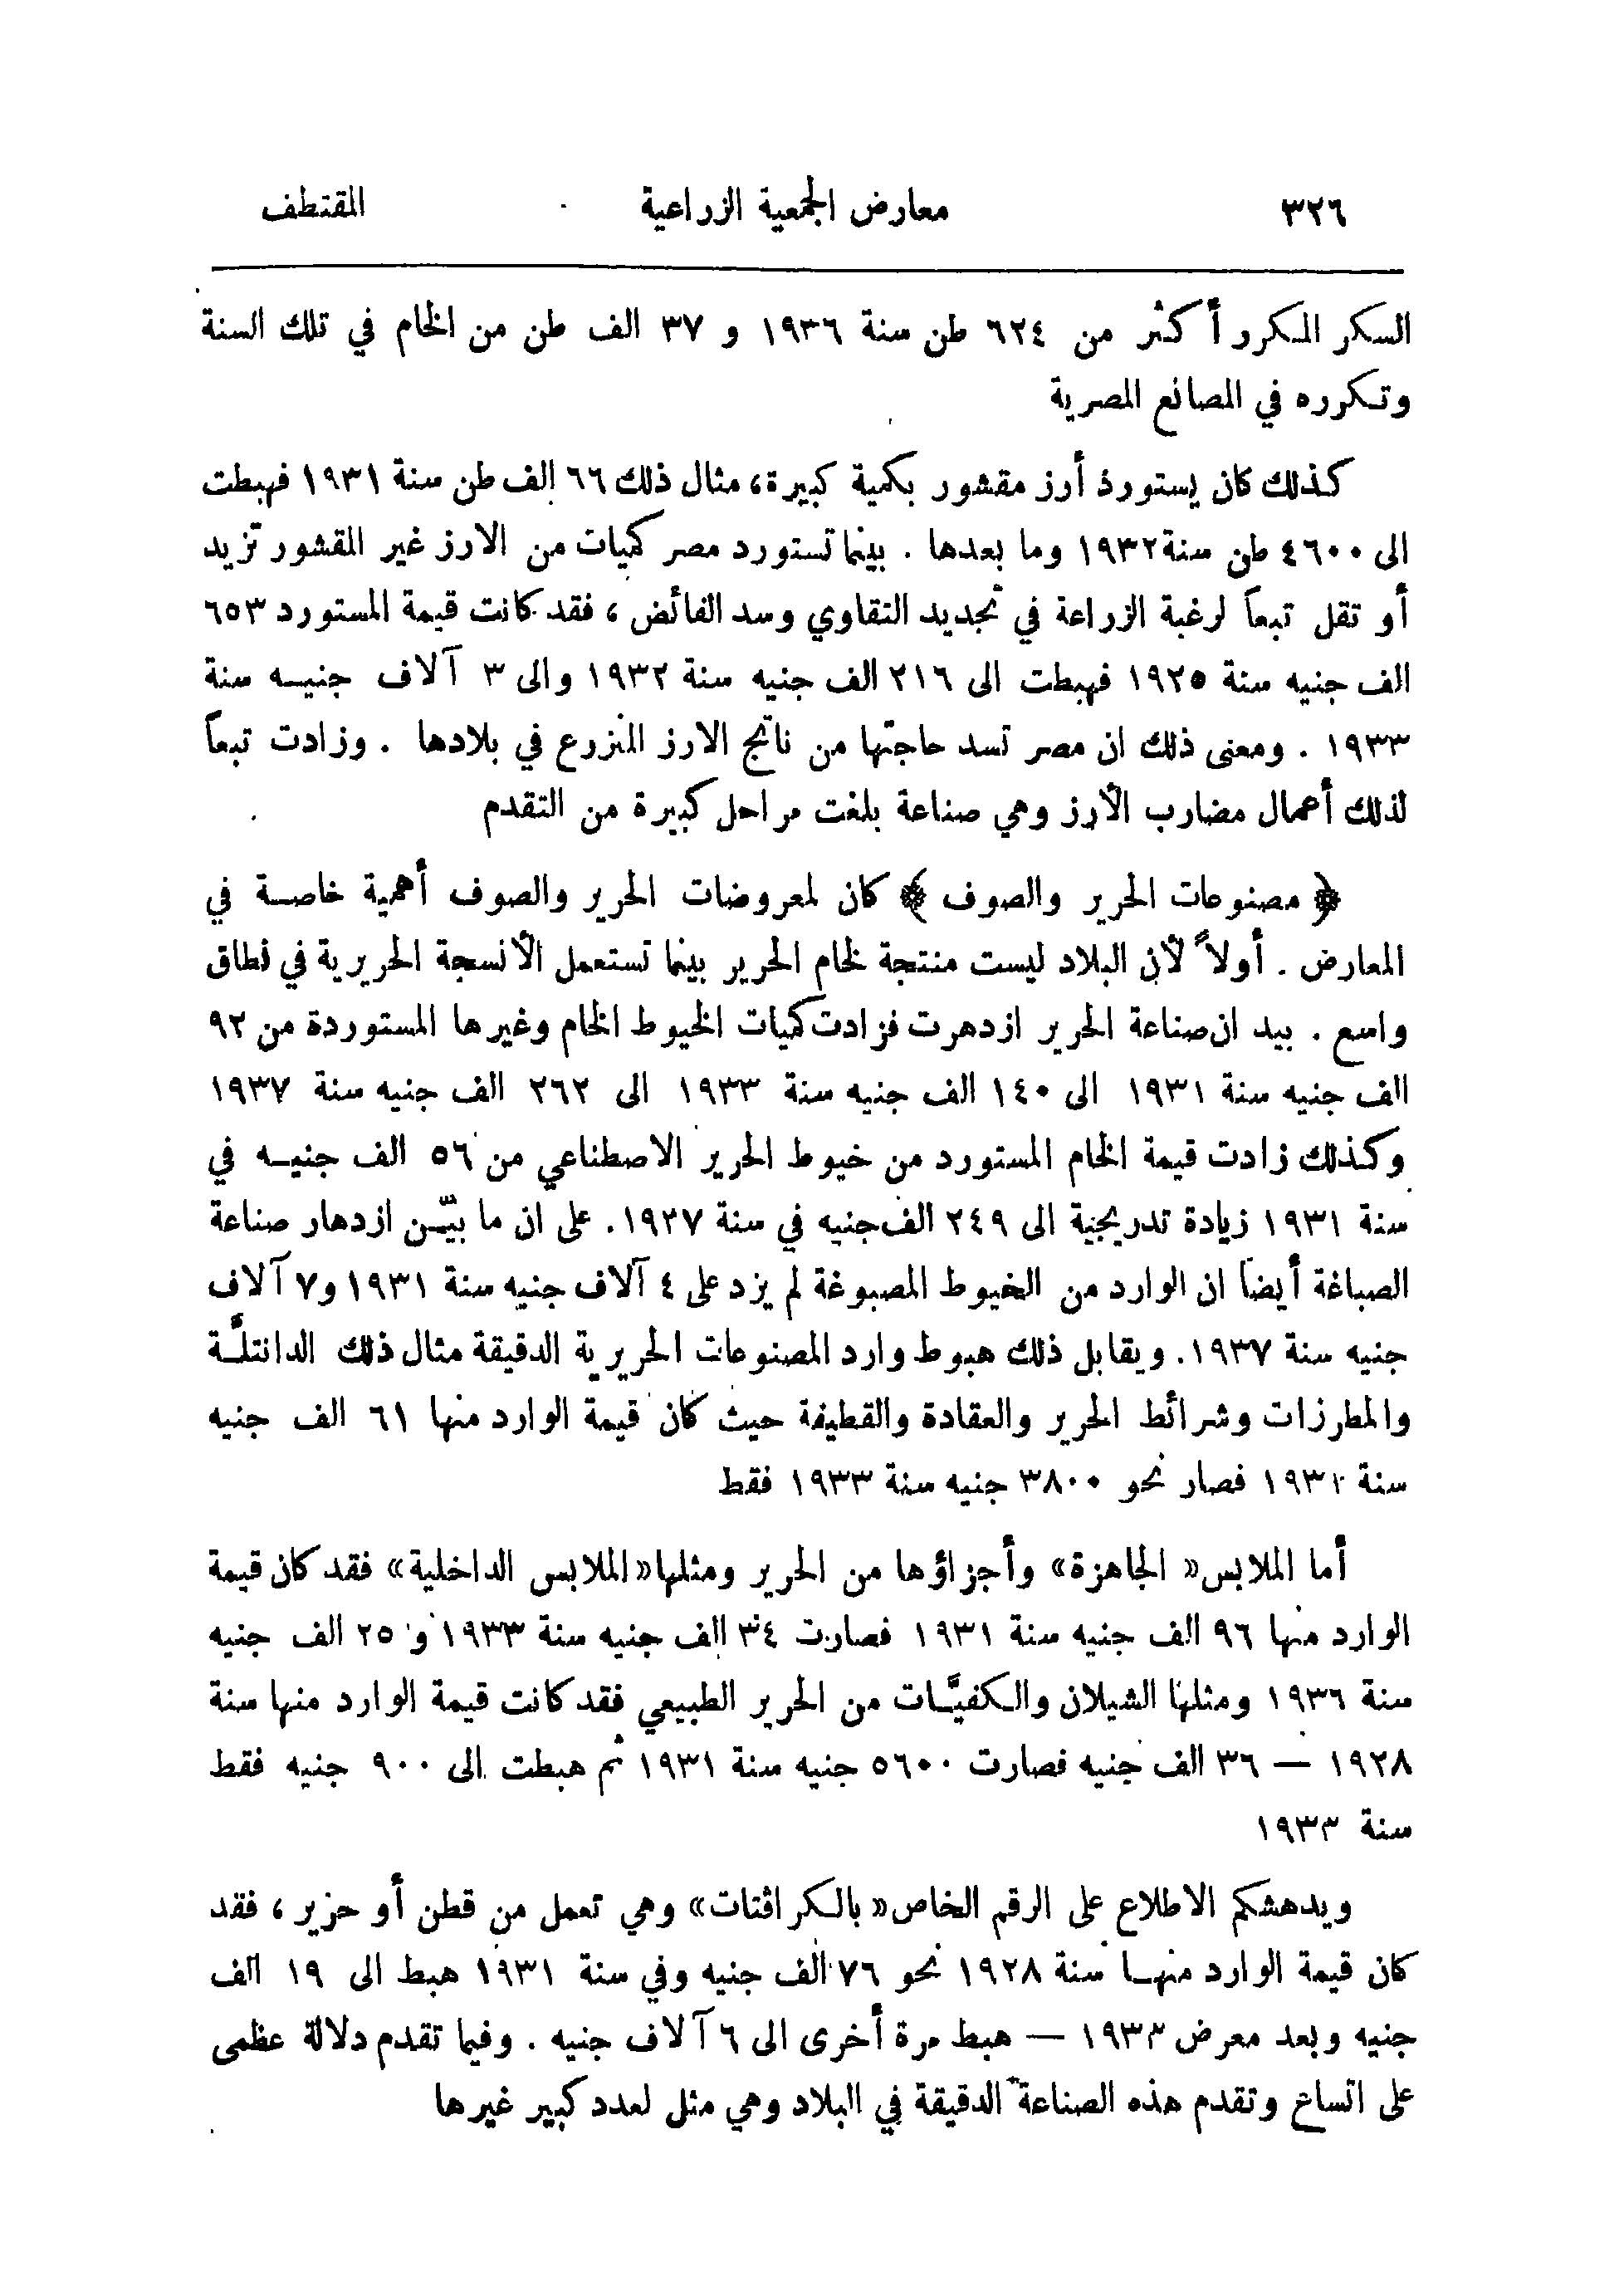 ٣٢٦ معارض الجمعية الزراعية المقتطف
السكر المكرر أكثر من ٦٢٤ طن سنة ١٩٣٦ و ٣٧ الف طن من الخام في تلك السنة
وتكرره في المصانع المصرية
كذلك كان يستورد أرز مقشور بكمية كبيرة، مثال ذلك ٦٦ الف طن سنة ١٩٣١ فهبطت
الى ٤٦٠٠ طن سنة ١٩٣٢ وما بعدها . بينما تستورد مصر كميات من الارز غير المقشور تزيد
أو تقل تبعاً لرغبة الزراعة في تجديد التقاوي وسد الفائض ، فقد كانت قيمة المستورد ٦٥٣
الف جنيه سنة ١٩٢٥ فهبطت الى ٢١٦ الف جنيه سنة ١٩٣٢ والى ٣ آلاف جنيه سنة
١٩٣٣ . ومعنى ذلك ان مصر تسد حاجتها من ناتج الارز المنزرع في بلادها . وزادت تبعاً
لذلك أعمال مضارب الأرز وهي صناعة بلغت مراحل كبيرة من التقدم
﴿ مصنوعات الحرير والصوف ﴾ كان لمعروضات الحرير والصوف أهمية خاصة في
المعارض . أولاً لأن البلاد ليست منتجة لخام الحرير بينما تستعمل الأنسجة الحريرية في نطاق
واسع . بيد ان صناعة الحرير ازدهرت فزادت كميات الخيوط الخام وغيرها المستوردة من ٩٢
الف جنيه سنة ١٩٣١ الى ١٤٠ الف جنيه سنة ١٩٣٣ الى ٢٦٢ الف جنيه سنة ١٩٣٧
وكذلك زادت قيمة الخام المستورد من خيوط الحرير الاصطناعي من ٥٦ الف جنيه في
سنة ١٩٣١ زيادة تدريجية الى ٢٤٩ الف جنيه في سنة ١٩٢٧. على ان ما بيّن ازدهار صناعة
الصباغة أيضاً ان الوارد من الخيوط المصبوغة لم يزد على ٤ آلاف جنيه سنة ١٩٣١ و٧ آلاف
جنيه سنة ١٩٣٧. ويقابل ذلك هبوط وارد المصنوعات الحريرية الدقيقة مثال ذلك الدانتلَّة
والمطرزات وشرائط الحرير والعقادة والقطيفة حيث كان قيمة الوارد منها ٦١ الف جنيه
سنة ١٩٣١ فصار نحو ٣٨٠٠ جنيه سنة ١٩٣٣ فقط
أما الملابس « الجاهزة» وأجزاؤها من الحرير ومثلها «الملابس الداخلية» فقد كان قيمة
الوارد منها ٩٦ الف جنيه سنة ١٩٣١ فصارت ٣٤ الف جنيه سنة ١٩٣٣ و ٢٥ الف جنيه
سنة ١٩٣٦ ومثلها الشيلان والكفيَّات من الحرير الطبيعي فقد كانت قيمة الوارد منها سنة
١٩٢٨ — ٣٦ الف جنيه فصارت ٥٦٠٠ جنيه سنة ١٩٣١ ثم هبطت الى ٩٠٠ جنيه فقط
سنة ١٩٣٣
ويدهشكم الاطلاع على الرقم الخاص « بالكراڤتات» وهي تعمل من قطن أو حرير ، فقد
كان قيمة الوارد منها سنة ١٩٢٨ نحو ٧٦ الف جنيه وفي سنة ١٩٣١ هبط الى ١٩ الف
جنيه وبعد معرض ١٩٣٣ — هبط مرة أخرى الى ٦ آلاف جنيه . وفيما تقدم دلالة عظمى
على اتساع وتقدم هذه الصناعة الدقيقة في البلاد وهي مثل لعدد كبير غيرها